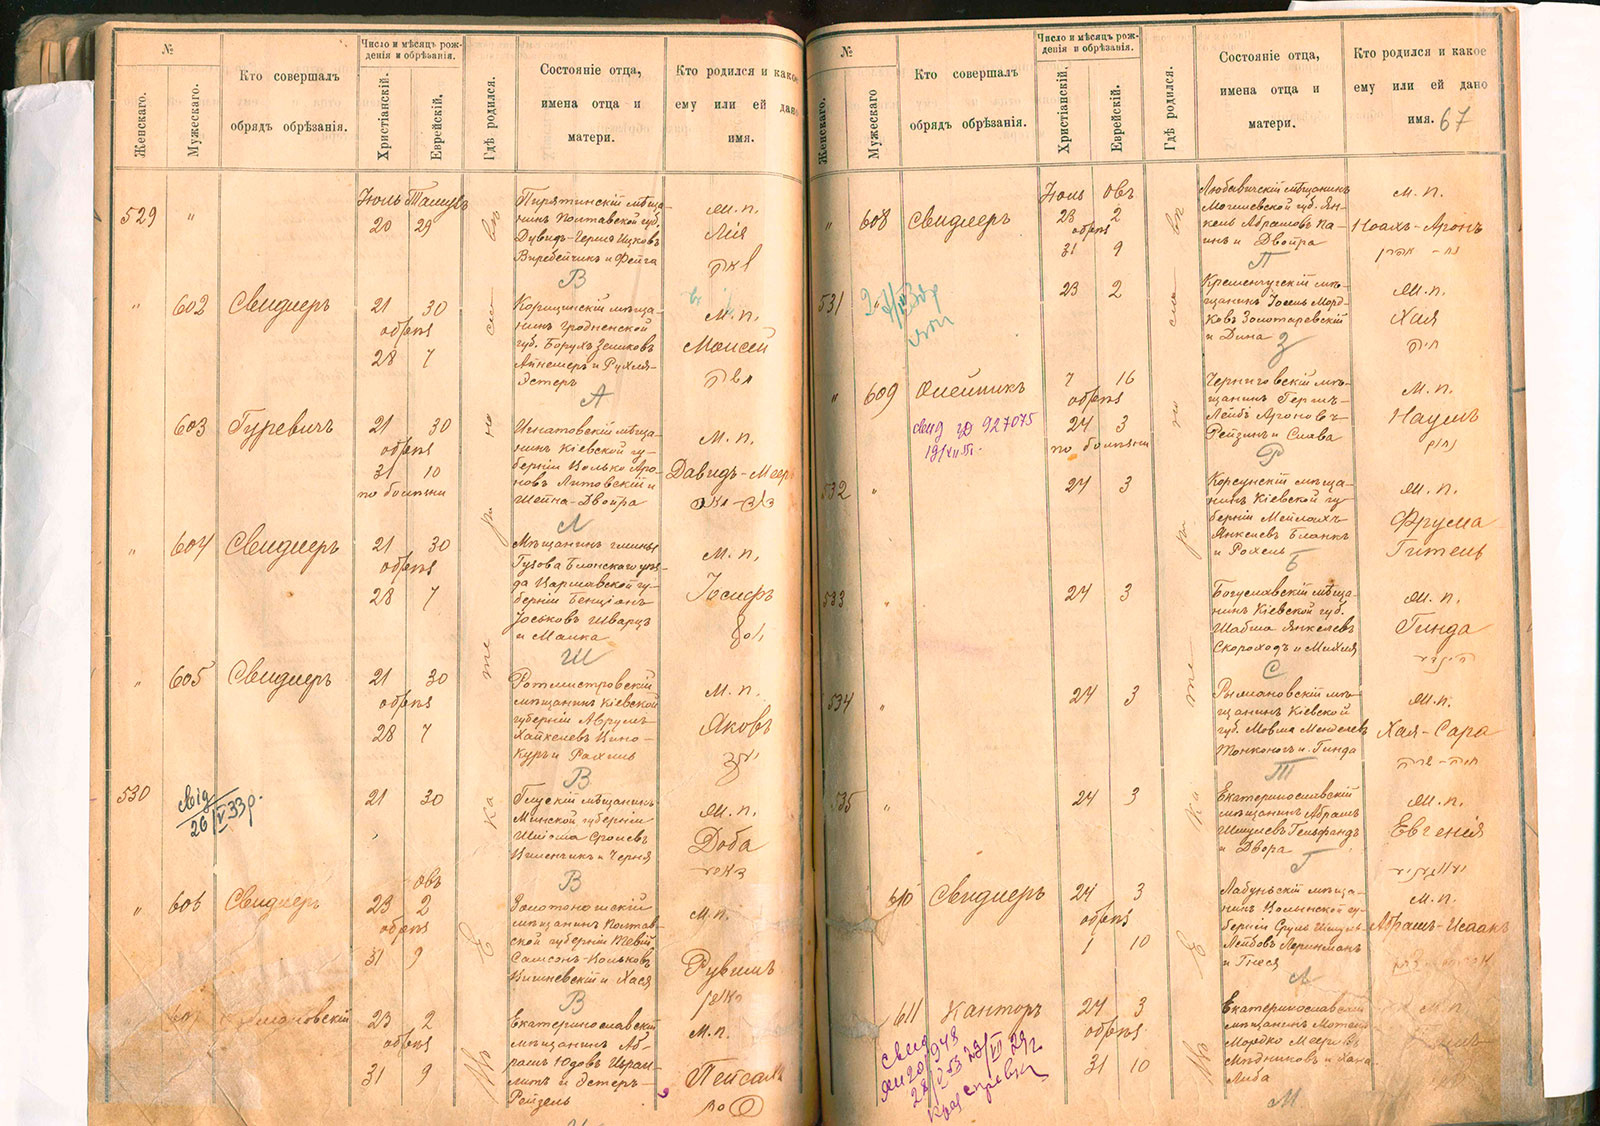 №
Женскаго.
Мужескаго.
Кто совершалъ
обрядъ обрѣзанія.
Число и мѣсяцъ рож-
денія и обрѣзанія.
Христіанскій.
Еврейскій.
Гдѣ родился.
Состояніе отца,
имена отца и
матери.
Кто родился и какое
ему или ей дано
имя.
529
"
Іюль Тамузъ
20 29
Пирятинскій мѣща-
нинъ Полтавской губ.
Дувидъ-Герша Ицковъ
и Фейга
м. п.
Лія
В
"
602
Свидлеръ
21 30
обрѣз
28 7
нинъ Гродненской
губ. Борухъ Зеликовъ
и Рухля-
Эстеръ
м. п.
Моисей
משה
А
603
Гуревичъ
21 30
обрѣз
31 10
по болѣзни
Игнатовскій мѣща-
нинъ Кіевской гу-
берніи Волько Аро-
новъ Литовскій и
Шейна-Двойра
м. п.
Давидъ-Мееръ
Л
"
604
Свидлеръ
21 30
обрѣз
28 7
Мѣщанинъ гмины
Гузова Блонскаго уѣз-
да Варшавской гу-
берніи Бенціонъ
Іоськовъ Шварцъ
и Малка
м. п.
Іосифъ
Ш
"
605
Свидлеръ
21 30
обрѣз
28 7
Ротмистровскій
мѣщанинъ Кіевской
губерніи Аврумъ-
Хайкелевъ Вино-
куръ и Рахиль
м. п.
Яковъ
יעקב
В
530
свід
26/V 33р.
21 30
Глускій мѣщанинъ
Минской губерніи
Шліома Сролевъ
Виленчикъ и Черня
м. п.
Доба
В
"
606
Свидлеръ
овъ
23 2
обрѣз
31 9
Золотоношскій
мѣщанинъ Полтав-
ской губерніи Тевій
Самсонъ-Вольковъ
Вишневскій и Хася
м. п.
Рувимъ
В
23 2
обрѣз
31 9
Екатеринославскій
мѣщанинъ Аб-
рамъ Юдовъ Израи-
и Эстеръ-
Рейзель
м. п.
Ека те ри но сла въ
№
Женскаго.
Мужескаго
Кто совершалъ
обрядъ обрѣзанія.
Число и мѣсяцъ рож-
денія и обрѣзанія.
Христіанскій.
Еврейскій.
Гдѣ родился.
Состояніе отца,
имена отца и
матери.
Кто родился и какое
ему или ей дано
имя. 67
"
608
Свидлеръ
Іюль овъ
23 2
обрѣз
31 9
Любавичскій мѣщанинъ
Могилевской губ. Ян-
кель Абрамовъ Ка-
инъ и Двойра
м. п.
Ноахъ-Аронъ
נח - אהרן
П
531
23 2
Кременчугскій мѣ-
щанинъ Іосель Морд-
ковъ Золотаревскій
и Дина
м. п.
Хая
חיה
З
"
609
Олейникъ
7 16
обрѣз
24 3
по болѣзни
свид 927075
19/VII
Черниговскій мѣ-
щанинъ Гершъ-
Лейбъ Ароновъ
Рейзинъ и Слава
м. п.
Наумъ
נחום
Р
532
"
24 3
Корсунскій мѣща-
нинъ Кіевской гу-
берніи Мейлахъ-
Янкелевъ Бланкъ
и Рохель
м. п.
Фрума
Гитель
Б
533
24 3
Богуславскій мѣща-
нинъ Кіевской губ.
Шабша Янкелевъ
Скороходъ и Михля
м. п.
Гинда
С
534
"
24 3
мѣ-
щанинъ Кіевской
губ. Мовша Менделевъ
Тонконогъ и Гинда
м. п.
Хая-Сара
חיה-שרה
Т
535
"
24 3
Екатеринославскій
мѣщанинъ Абрамъ
Шмулевъ Гельфандъ
и Двора
м. п.
Евгенія
Г
610
Свидлеръ
24 3
обрѣз
1 10
Лабунскій мѣща-
нинъ Волынской гу-
берніи Сруль Шмуль-
Лейбовъ Лернманъ
и Гнеся
м. п.
Абрамъ-Исаакъ
Л
611
Канторъ
24 3
обрѣз
31 10
свид
Екатеринославскій
мѣщанинъ
Мордко Мееровъ
Мѣдниковъ и Хана
Либа
м. п.
М
Ека те ри но сла въ